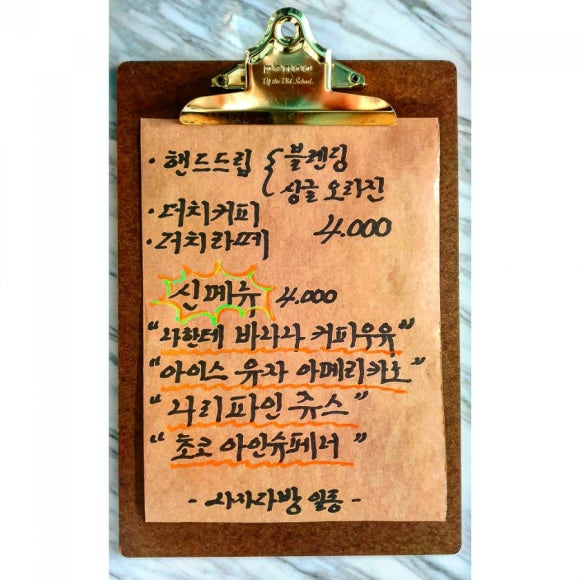 Of the Old School
· 핸드드립 { 블렌딩
싱글 오리진
· 더치커피
· 더치라떼 4.000
신메뉴 4.000
"나한테 바나나 커피우유"
"아이스 유자 아메리카노"
"나리파인 쥬스"
"초코 아인슈페너"
- 사자다방 일동 -